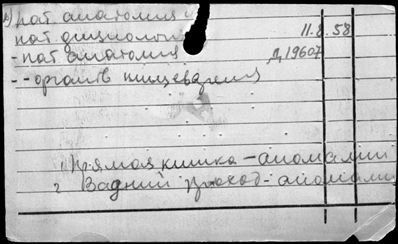 пат анатомия
пат физиологи 11.8.58
- пат анатомия Д19607
- - органів пищеварения
1 Прямая кишка - аномалии
2 Задний проход - аномалии